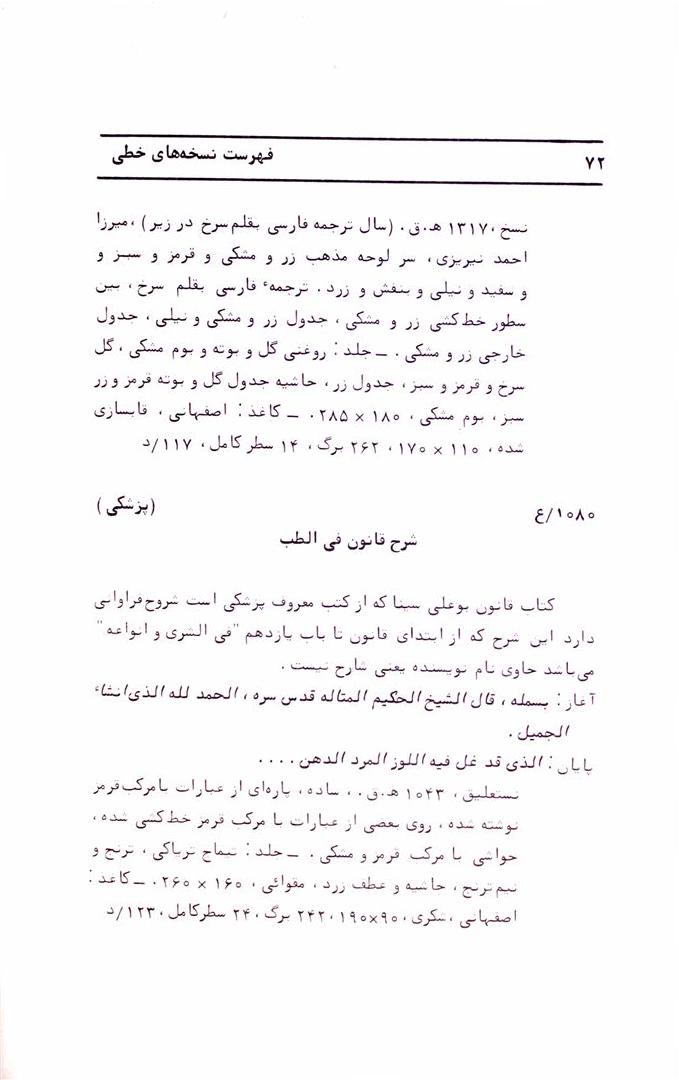 ۷۲ فهرست نسخه‌های خطی
نسخ ،۱۳۱۷ ه‍.ق. (سال ترجمه فارسی بقلم سرخ در زیر) ،میرزا
احمد نیریزی، سر لوحه مذهب زر و مشکی و قرمز و سبز و
و سفید و نیلی و بنفش و زرد. ترجمهٔ فارسی بقلم سرخ، بین
سطور خط کشی زر و مشکی، جدول زر و مشکی و نیلی، جدول
خارجی زر و مشکی. ــ جلد: روغنی گل و بوته و بوم مشکی، گل
سرخ و قرمز و سبز، جدول زر، حاشیه جدول گل و بوته قرمز و زر
سبز، بوم مشکی، ۱۸۰ × ۲۸۵. ــ کاغذ: اصفهانی، قابسازی
شده، ۱۱۰ × ۱۷۰، ۲۶۲ برگ، ۱۴ سطر کامل، ۱۱۷/د
۱۰۸۰/ع (پزشکی)
شرح قانون فی الطب
کتاب قانون بوعلی سینا که از کتب معروف پزشکی است شروح فراوانی
دارد این شرح که از ابتدای قانون تا باب یازدهم "فی الشری و انواعه"
می‌باشد حاوی نام نویسنده یعنی شارح نیست.
آغاز: بسمله، قال الشیخ الحکیم المتاله قدس سره، الحمد لله الذی انشاء
الجمیل.
پایان: الذی قد غل فیه اللوز المرد الدهن....
نستعلیق، ۱۰۴۳ ه‍.ق.، ساده، پاره‌ای از عبارات با مرکب قرمز
نوشته شده، روی بعضی از عبارات با مرکب قرمز خط کشی شده،
حواشی با مرکب قرمز و مشکی. ــ جلد: تیماج تریاکی، ترنج و
نیم ترنج، حاشیه و عطف زرد، مقوائی، ۱۶۰ × ۲۶۰. ــ کاغذ:
اصفهانی، شکری، ۹۰×۱۹۰، ۲۴۲ برگ، ۲۴ سطر کامل، ۱۲۳/د